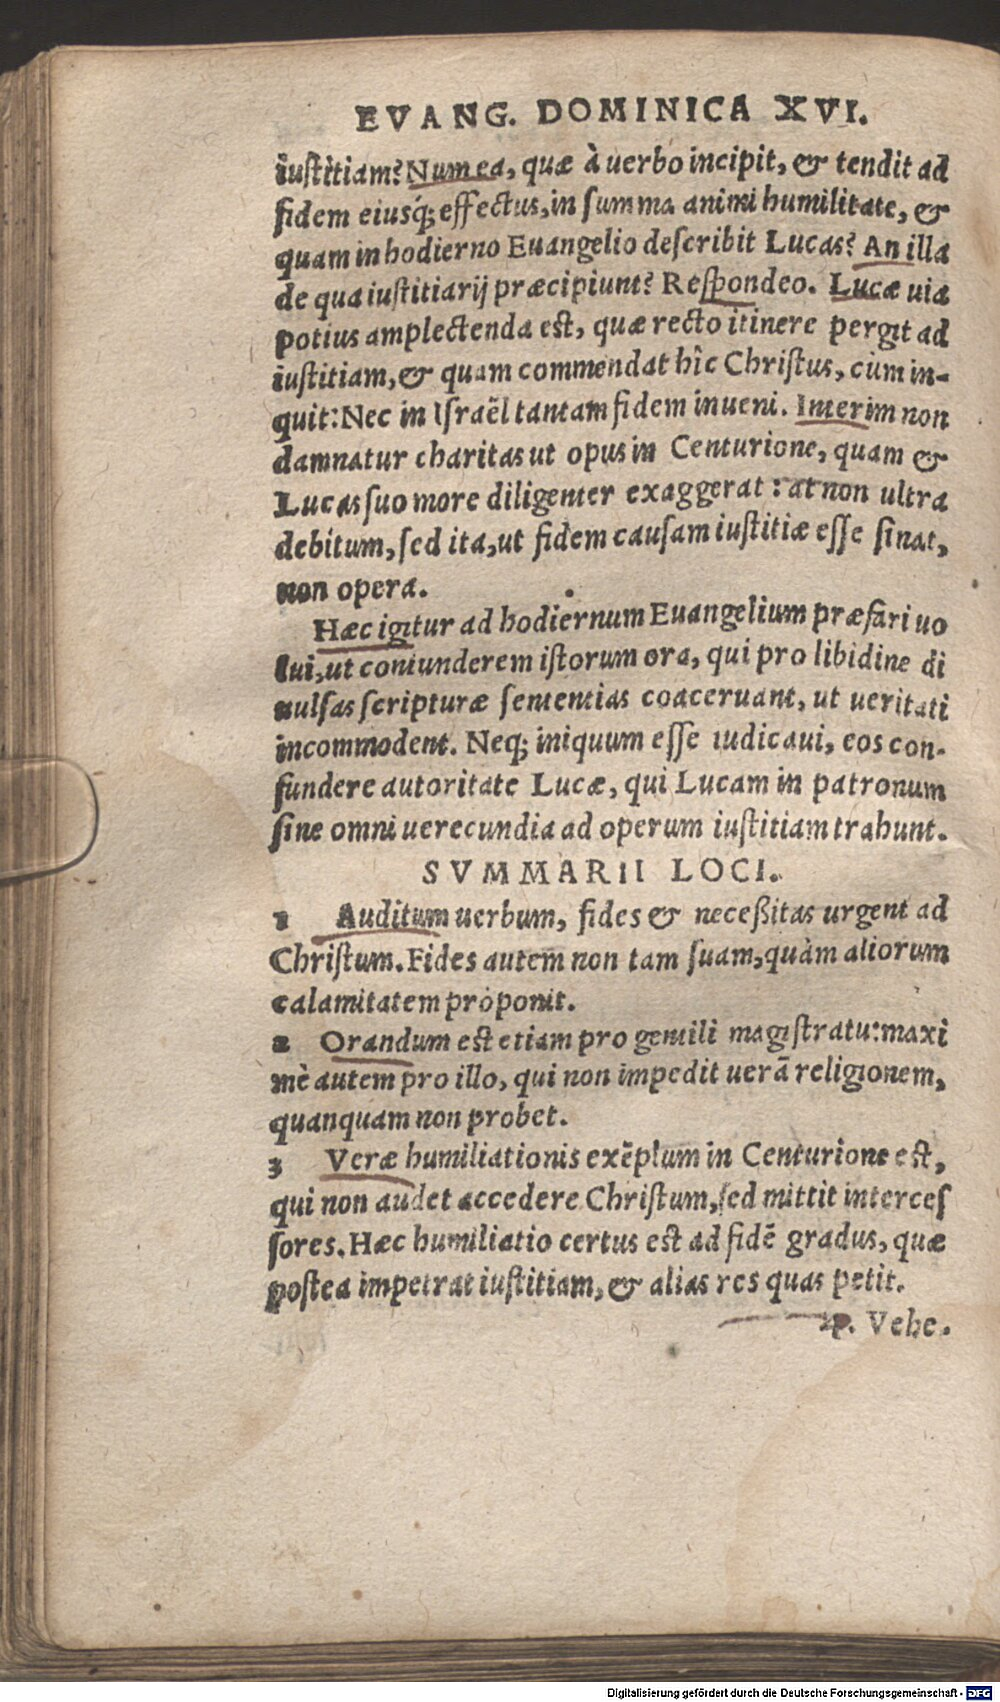 EVANG. DOMINICA XVI.
iustitiam? Num ea, quæ à uerbo incipit, & tendit ad
fidem eiusq́; effectus, in summa animi humilitate, &
quam in hodierno Euangelio describit Lucas? An illa
de qua iustitiarij præcipiunt? Respondeo. Lucæ uia
potius amplectenda est, quæ recto itinere pergit ad
iustitiam, & quam commendat hîc Christus, cùm in-
quit: Nec in Israël tantam fidem inueni. Interim non
damnatur charitas ut opus in Centurione, quam &
Lucas suo more diligenter exaggerat: at non ultra
debitum, sed ita, ut fidem causam iustitiæ esse sinat,
non opera.
Hæc igitur ad hodiernum Euangelium præfari uo
lui, ut contunderem istorum ora, qui pro libidine di
uulsas scripturæ sententias coaceruant, ut ueritati
incommodent. Neq; iniquum esse iudicaui, eos con-
fundere autoritate Lucæ, qui Lucam in patronum
sine omni uerecundia ad operum iustitiam trahunt.
SVMMARII LOCI.
1 Auditum uerbum, fides & neceßitas urgent ad
Christum. Fides autem non tam suam, quàm aliorum
calamitatem proponit.
2 Orandum est etiam pro gentili magistratu: maxi
mè autem pro illo, qui non impedit uerā religionem,
quanquam non probet.
3 Veræ humiliationis exēplum in Centurione est,
qui non audet accedere Christum, sed mittit interces
sores. Hæc humiliatio certus est ad fidē gradus, quæ
postea impetrat iustitiam, & alias res quas petit.
4. Vehe.
Digitalisierung gefördert durch die Deutsche Forschungsgemeinschaft - DFG